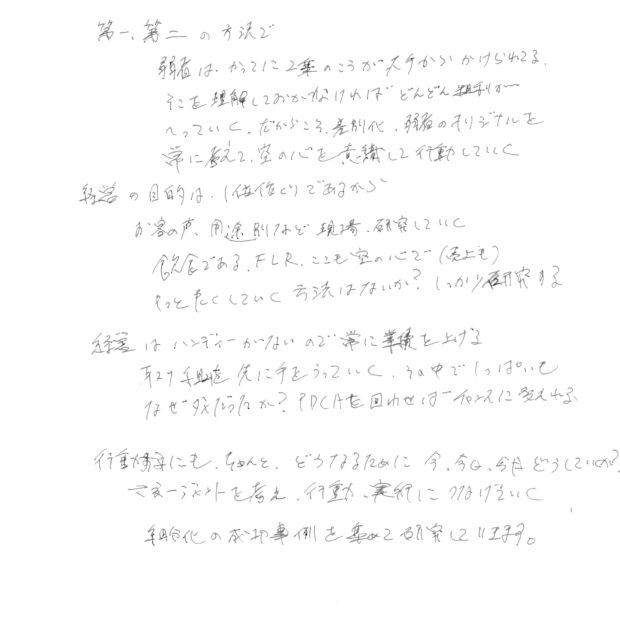 第一、第二の方法で
弱者は、かってに2乗のこうが大手からかけられてる。
そこを理解しておかなければどんどん粗利が
へっていく、だからこそ、差別化、弱者のオリジナルを
常に考えて、空の心を意識して行動していく
経営の目的は、1位作りであるから
お客の声、用途別など現場、研究していく
飲食である、FLR、ここも空の心で(売上も)
もっとたくしていく方法はないか?しっかり研究する
経営はハンディーがないので常に業績を上げる
取り組を先に手をうっていく、その中でしっぱいも
なぜダメだったか?PDCAを回わせばチャンスに変えれる
行動にも、ちゃんと、どうなるために今、今日、今月どうしていくか?
マネージメントを考え、行動、実行につなげていく
化の成功事例を集めて研究しています。